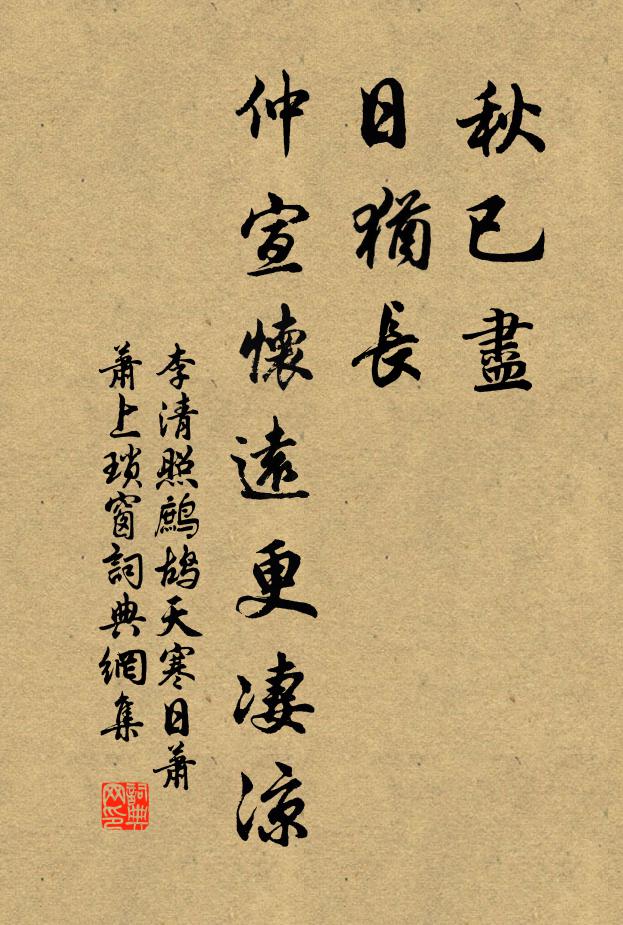 秋已盡
日猶長
仲宣懷遠更凄涼
李清照鷓鴣天寒日蕭
蕭上瑣窗詞典網集
詞典
网印